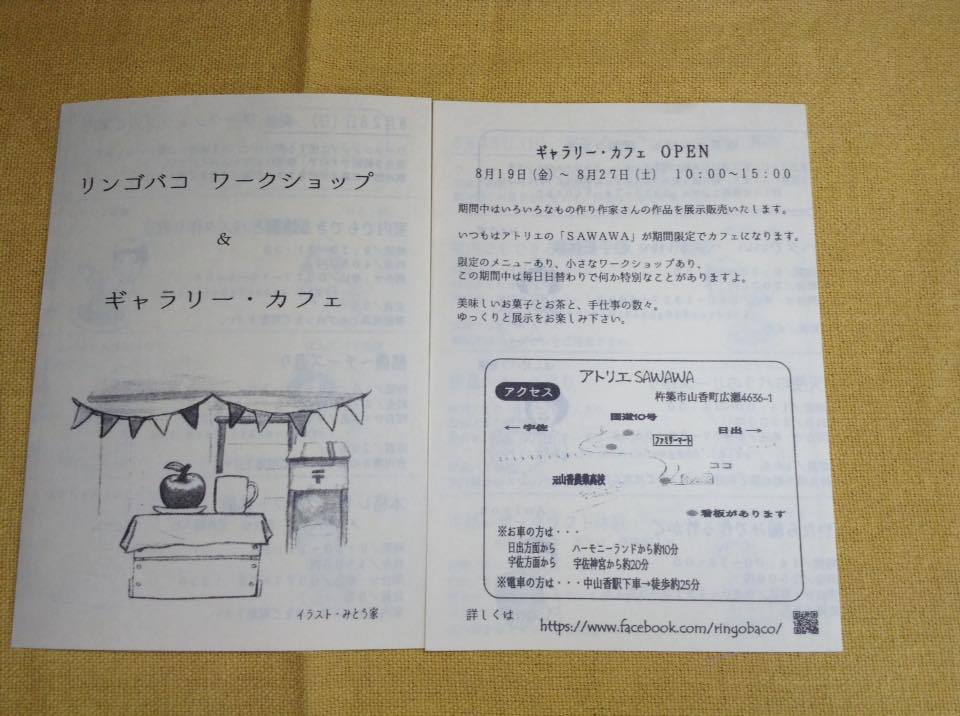 リンゴバコ ワークショップ
&
ギャラリー・カフェ
〒
イラスト・みとう家
ギャラリー・カフェ OPEN
8月19日(金)～8月27日(土) 10:00～15:00
期間中はいろいろなもの作り作家さんの作品を展示販売いたします。
いつもはアトリエの「SAWAWA」が期間限定でカフェになります。
限定のメニューあり、小さなワークショップあり、
この期間中は毎日日替わりで何か特別なことがありますよ。
美味しいお菓子とお茶と、手仕事の数々。
ゆっくりと展示をお楽しみ下さい。
アトリエ SAWAWA
アクセス
杵築市山香町広瀬4636-1
国道10号
←宇佐
ファミリーマート
日出→
ココ
元山香農業高校
●看板があります
※お車の方は・・・
日出方面から ハーモニーランドから約10分
宇佐方面から 宇佐神宮から約20分
※電車の方は・・・中山香駅下車→徒歩約25分
詳しくは
https://www.facebook.com/ringobaco/